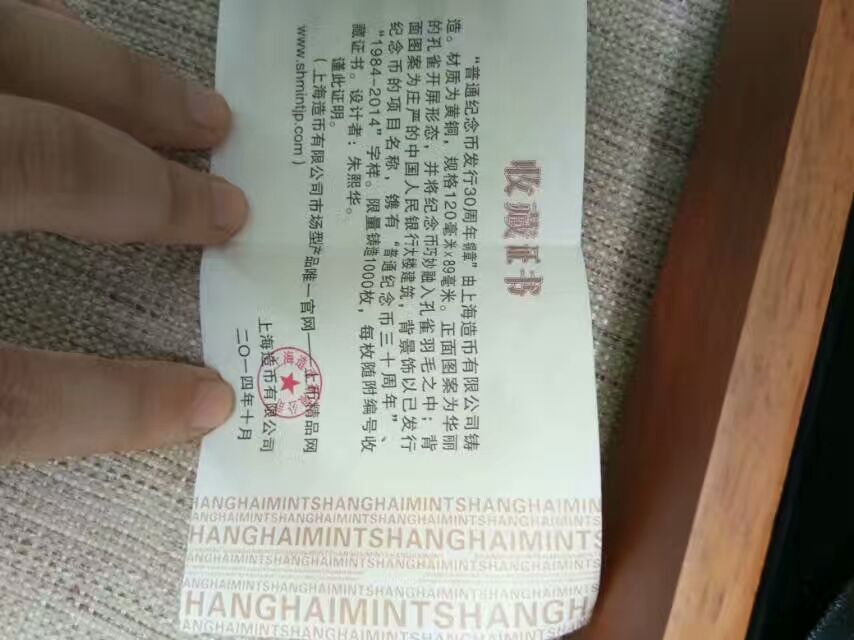 收藏证书
“普通纪念币发行30周年铜章”由上海造币有限公司铸
造。材质为黄铜，规格120毫米x89毫米。正面图案为华丽
的孔雀开屏形态，并将纪念币巧妙融入孔雀羽毛之中；背
面图案为庄严的中国人民银行大楼建筑，背景饰以已发行
纪念币的项目名称，镌有“普通纪念币三十周年”、
“1984-2014”字样。限量铸造1000枚，每枚随附编号收
藏证书。设计者：朱熙华。
谨此证明。
（上海造币有限公司市场型产品唯一官网——上币精品网
www.shmintjp.com）
上海造币有限公司
二〇一四年十月
HANGHAIMINTSHANGHAIMINTSHANGHAIMIN
ANGHAIMINTSHANGHAIMINTSHANGHAIMINTSHANGHAIMINT
HANGHAIMINTSHANGHAIMINTS
SHANGHAIMINTSHANGHAIMINTSHANGHAIMINT
HANGHAIMINTSHANG